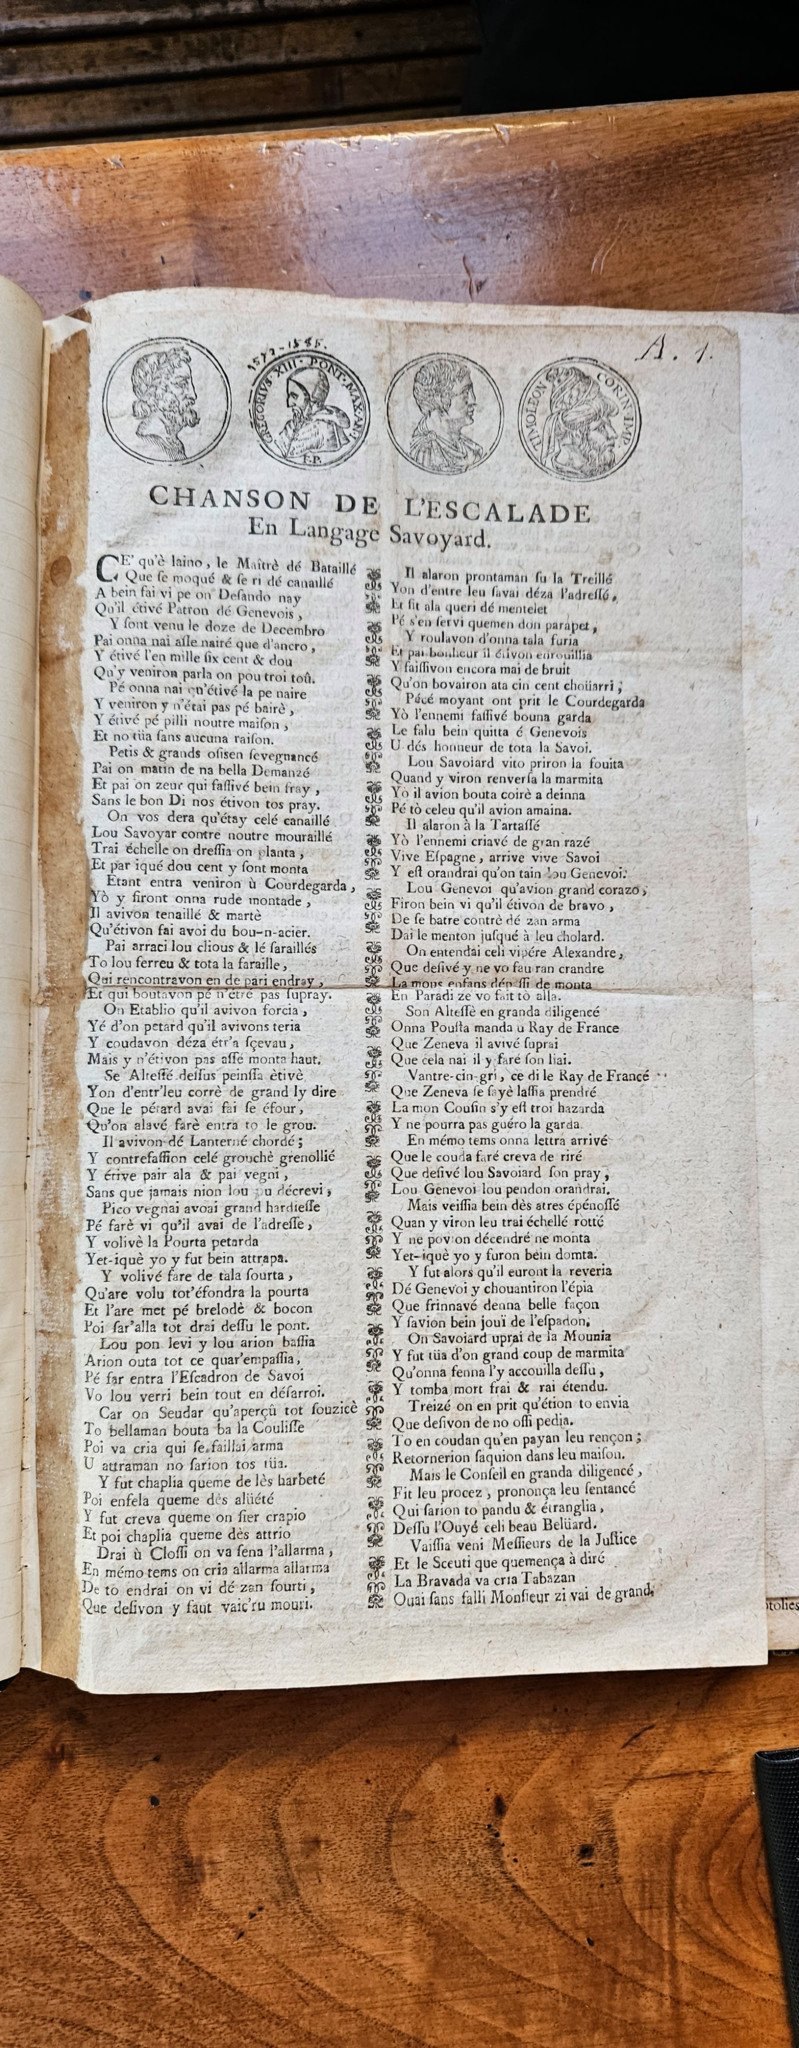 1572-1585.
A. 1.
GREGORIUS XIII PONT. MAX. AN. I
F.P.
TIMOLEON CORIN. IMP.
CHANSON DE L'ESCALADE
En Langage Savoyard.
CE' qu'è laino, le Maîtrè dé Bataillé
Que se moqué & se ri dé canaillé
A bein fai vi pe on Desando nay
Qu'il étivé Patron dé Genevois,
Y sont venu le doze de Decembro
Pai onna nai asse nairé que d'ancro,
Y étivé l'en mille six cent & dou
Qu'y veniron parla on pou troi toû.
Pé onna nai qu'étivé la pe naire
Y veniron y n'étai pas pé bairè,
Y étivé pé pilli noutre maison,
Et no tüa sans aucuna raison.
Petis & grands osisen sevegnancé
Pai on matin de na bella Demanzé
Et pai on zeur qui fassivé bein fray,
Sans le bon Di nos étivon tos pray.
On vos dera qu'étay celé canaillé
Lou Savoyar contre noutre mouraillé
Trai échelle on dressia on planta,
Et par iqué dou cent y sont monta
Etant entra veniron ù Courdegarda,
Yò y firont onna rude montade,
Il avivon tenaillé & martè
Qu'étivon fai avoi du bou-n-acier.
Pai arraci lou clious & lé saraillés
To lou ferreu & tota la faraille,
Qui rencontravon en de pari endray,
Et qui boutavon pé n'étré pas supray.
On Etablio qu'il avivon forcia,
Yé d'on petard qu'il avivons teria
Y coudavon déza étr'a sçevau,
Mais y n'étivon pas asse monta haut.
Se Altessé dessus peinssa étivè
Yon d'entr'leu corrè de grand ly dire
Que le pétard avai fai se éfour,
Qu'on alavé farè entra to le grou.
Il avivon dé Lanterné chordé;
Y contrefassion celé grouchè grenollié
Y étive pair ala & pai vegni,
Sans que jamais nion lou pu décrevi,
Pico vegnai avoai grand hardiesse
Pé farè vi qu'il avai de l'adresse,
Y volivè la Pourta petarda
Yet-iquè yo y fut bein attrapa.
Y volivé fare de tala sourta,
Qu'are volu tot'éfondra la pourta
Et l'are met pé brelodè & bocon
Poi sar'alla tot drai dessu le pont.
Lou pon levi y lou arion bassia
Arion outa tot ce quar'empassia,
Pé far entra l'Escadron de Savoi
Vo lou verri bein tout en désarroi.
Car on Seudar qu'aperçû tot souzicè
To bellaman bouta ba la Coulisse
Poi va cria qui se faillai arma
U attraman no sarion tos tüa.
Y fut chaplia queme de lès harbeté
Poi ensela queme dés alüété
Y fut creva queme on sier crapio
Et poi chaplia queme dès attrio
Drai ù Clossi on va sena l'allarma,
En mémo tems on cria allarma allarma
De to endrai on vi dé zan sourti,
Que desivon y faut vaic'ru mouri.
Il alaron prontaman su la Treillé
Yon d'entre leu savai déza l'adressé,
Et fit ala queri dé mentelet
Pé s'en servi quemen don parapet,
Y roulavon d'onna tala furia
Et pai bonheur il étivon enrouillia
Y faissivon encora mai de bruit
Qu'on bovairon ata cin cent choüarri;
Pécé moyant ont prit le Courdegarda
Yò l'ennemi fassivé bouna garda
Le falu bein quitta é Genevois
U dés honneur de tota la Savoi.
Lou Savoiard vito priron la fouita
Quand y viron renversa la marmita
Yò il avion bouta coirè a deinna
Pé tò celeu qu'il avion amaina.
Il alaron à la Tartassé
Yò l'ennemi criavé de gran razé
Vive Espagne, arrive vive Savoi
Y est orandrai qu'on tain lou Genevoi.
Lou Genevoi qu'avion grand corazo,
Firon bein vi qu'il étivon de bravo,
De se batre contrè dé zan arma
Dai le menton jusqué à leu cholard.
On entendai celi vipére Alexandre,
Que desivé y ne vo fau ran crandre
La mous enfans dépessi de monta
En Paradi ze vo fait tò alla.
Son Altessè en granda diligencé
Onna Pousta manda u Ray de France
Que Zeneva il avivé suprai
Que cela nai il y faré son liai.
Vantre-cin-gri, ce di le Ray de Francé
Que Zeneva se sayè lassia prendré
La mon Cousin s'y est troi hazarda
Y ne pourra pas guéro la garda.
En mémo tems onna lettra arrivé
Que le couda faré creva de riré
Que desivé lou Savoiard son pray,
Lou Genevoi lou pendon orandrai.
Mais veissia bein dès atres épénossé
Quan y viron leu trai échellé rotté
Y ne pov'on décendré ne monta
Yet-iquè yo y furon bein domta.
Y fut alors qu'il euront la reveria
Dé Genevoi y chouantiron l'épia
Que frinnavé denna belle façon
Y savion bein jouï de l'espadon.
On Savoiard uprai de la Mounia
Y fut tüa d'on grand coup de marmita
Qu'onna fenna l'y accouilla dessu,
Y tomba mort frai & rai étendu.
Treizé on en prit qu'étion to envia
Que desivon de no ossi pedia.
To en coudan qu'en payan leu rençon;
Retornerion saquion dans leu maison.
Mais le Conseil en granda diligencé,
Fit leu procez, prononça leu sentancé
Qui sarion to pandu & étranglia,
Dessu l'Ouyé celi beau Belüard.
Vaissia veni Messieurs de la Justice
Et le Sceuti que quemença à diré
La Bravada va cria Tabazan
Ouai sans falli Monsieur zi vai de grand,